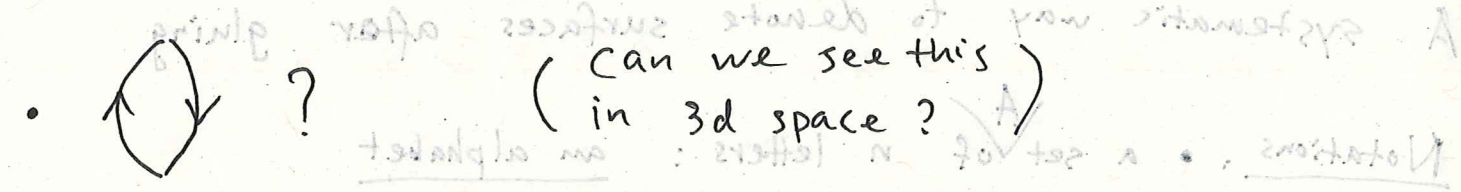 • ? ( can we see this
in 3d space ? )